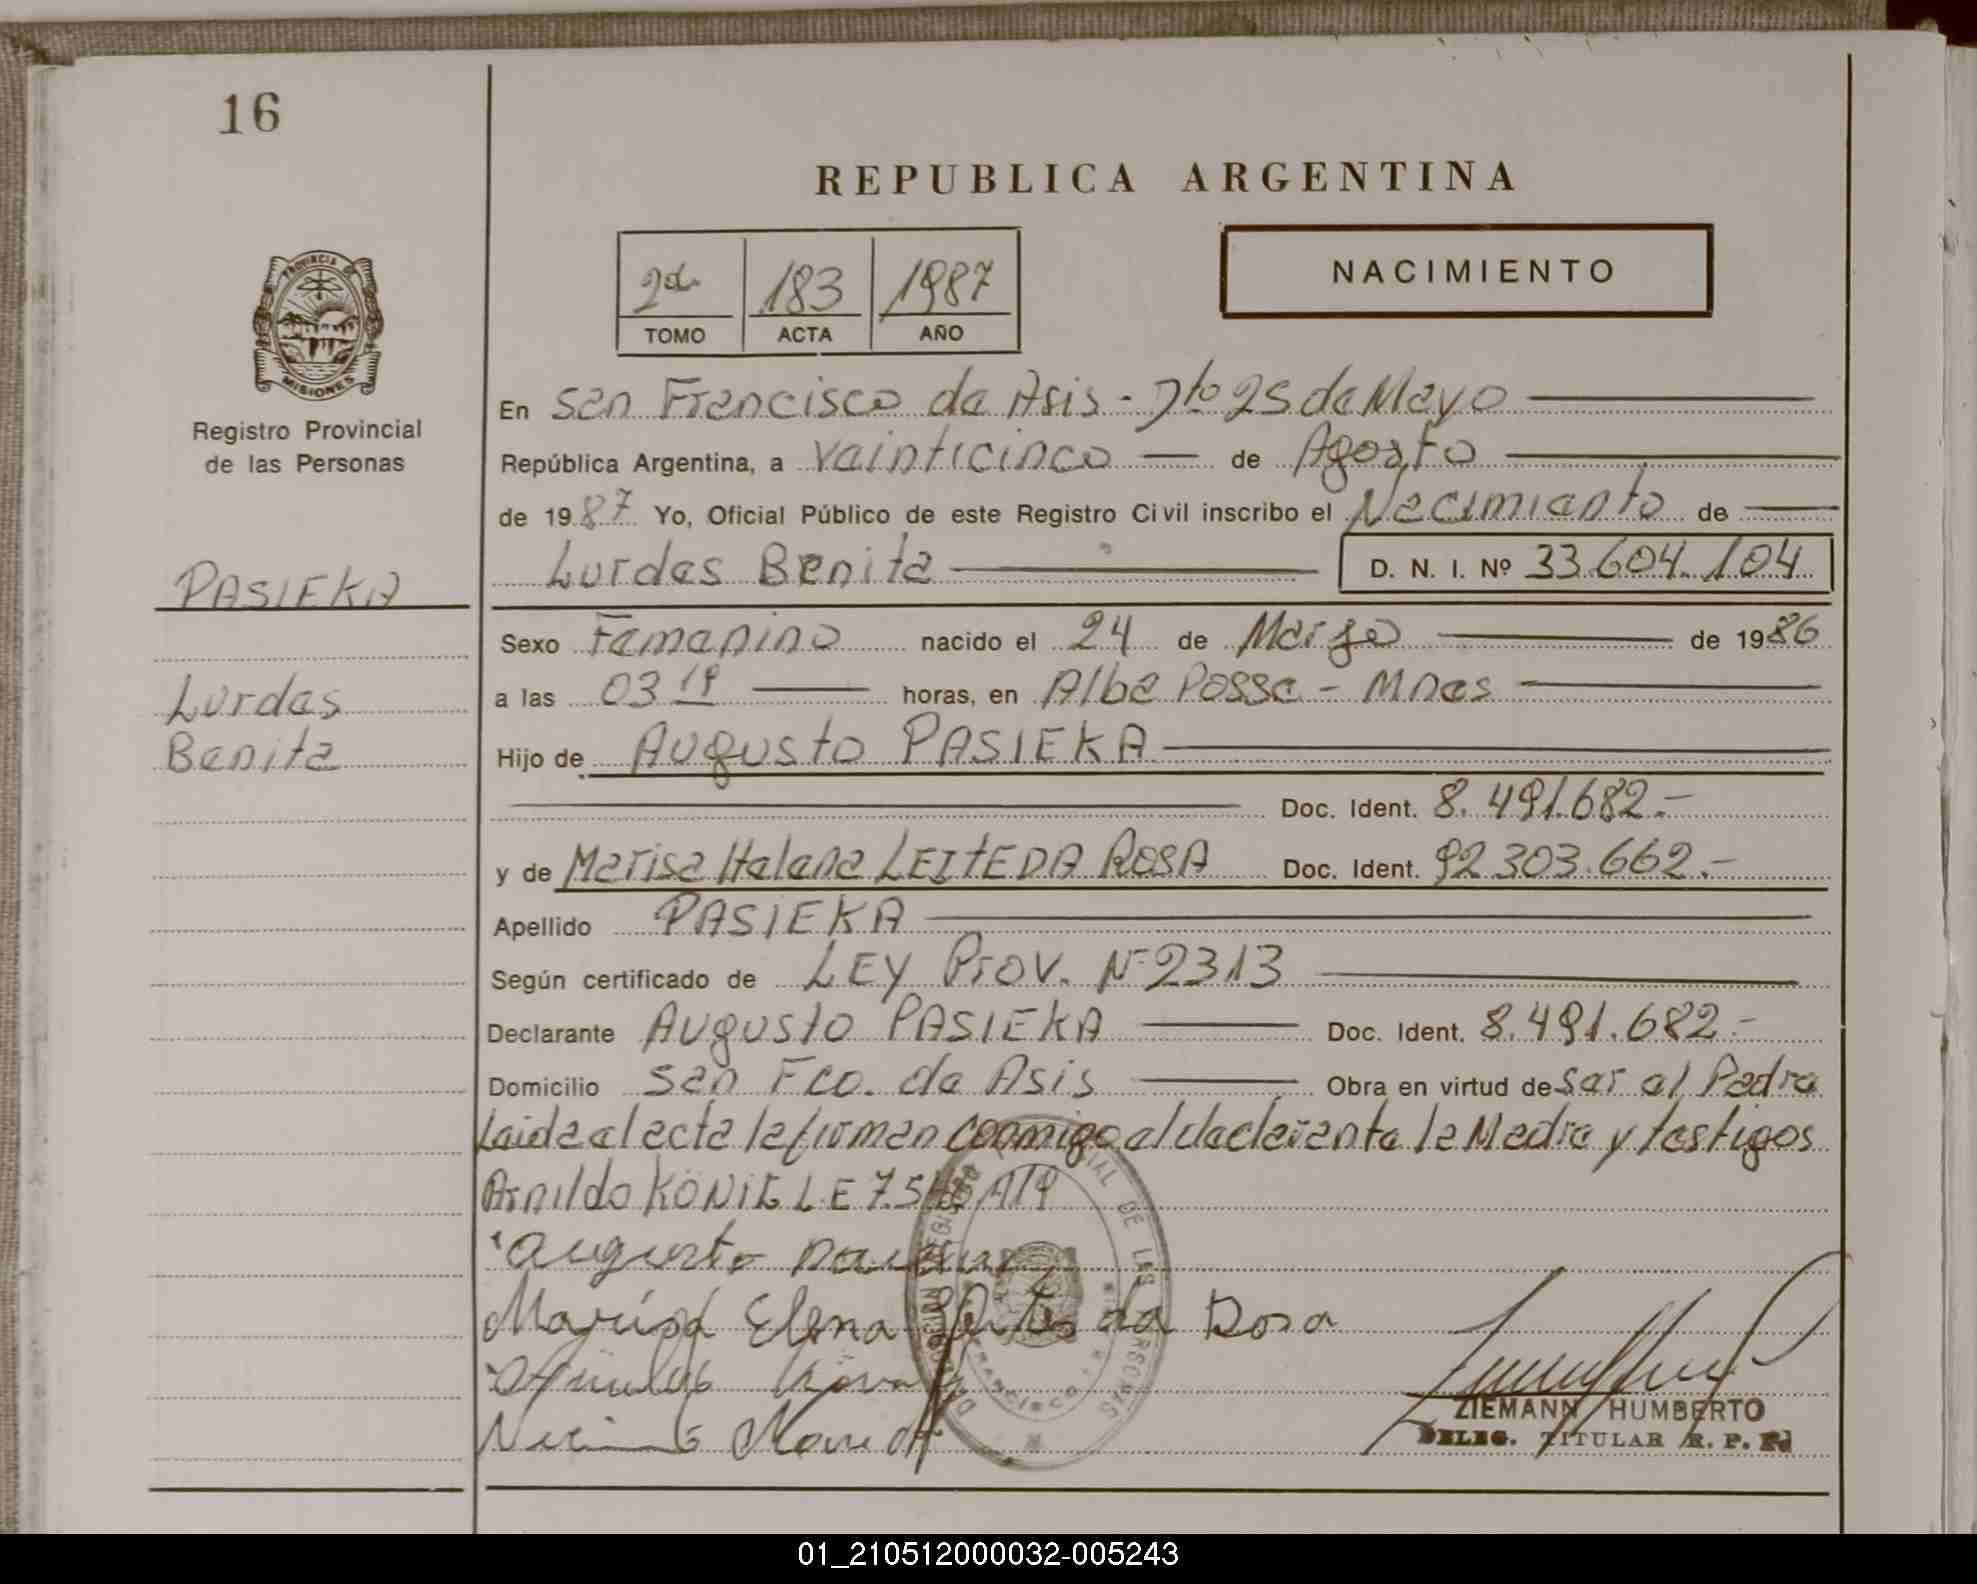 16
REPUBLICA ARGENTINA
NACIMIENTO
2do 183 1987
TOMO ACTA AÑO
PROVINCIA DE
MISIONES
Registro Provincial
de las Personas
En San Francisco de Asis - Dto 25 de Mayo
República Argentina, a Veinticinco de Agosto
de 1987 Yo, Oficial Público de este Registro Civil inscribo el Nacimiento de
Lurdes Benita D. N. I. Nº 33.604.104
PASIEKA
Lurdes
Benita
Sexo Femenino nacido el 24 de Marzo de 1986
a las 03 19 horas, en Alba Posse - Mnes
Hijo de Augusto PASIEKA
Doc. Ident. 8.491.682.-
y de Marisa Helena LEITE DA ROSA Doc. Ident. 92.303.662.-
Apellido PASIEKA
Según certificado de LEY Prov. Nº 2313
Declarante Augusto PASIEKA Doc. Ident. 8.491.682.-
Domicilio San Fco. de Asis Obra en virtud de ser el Padre
Leida el acta la firman conmigo el declarante la Madre y testigos
Arnildo KÖNIG L.E 7.5
Augusto
Marisa Elena da Rosa
ZIEMANN HUMBERTO
DELEG. TITULAR R. P. P.
01_210512000032-005243